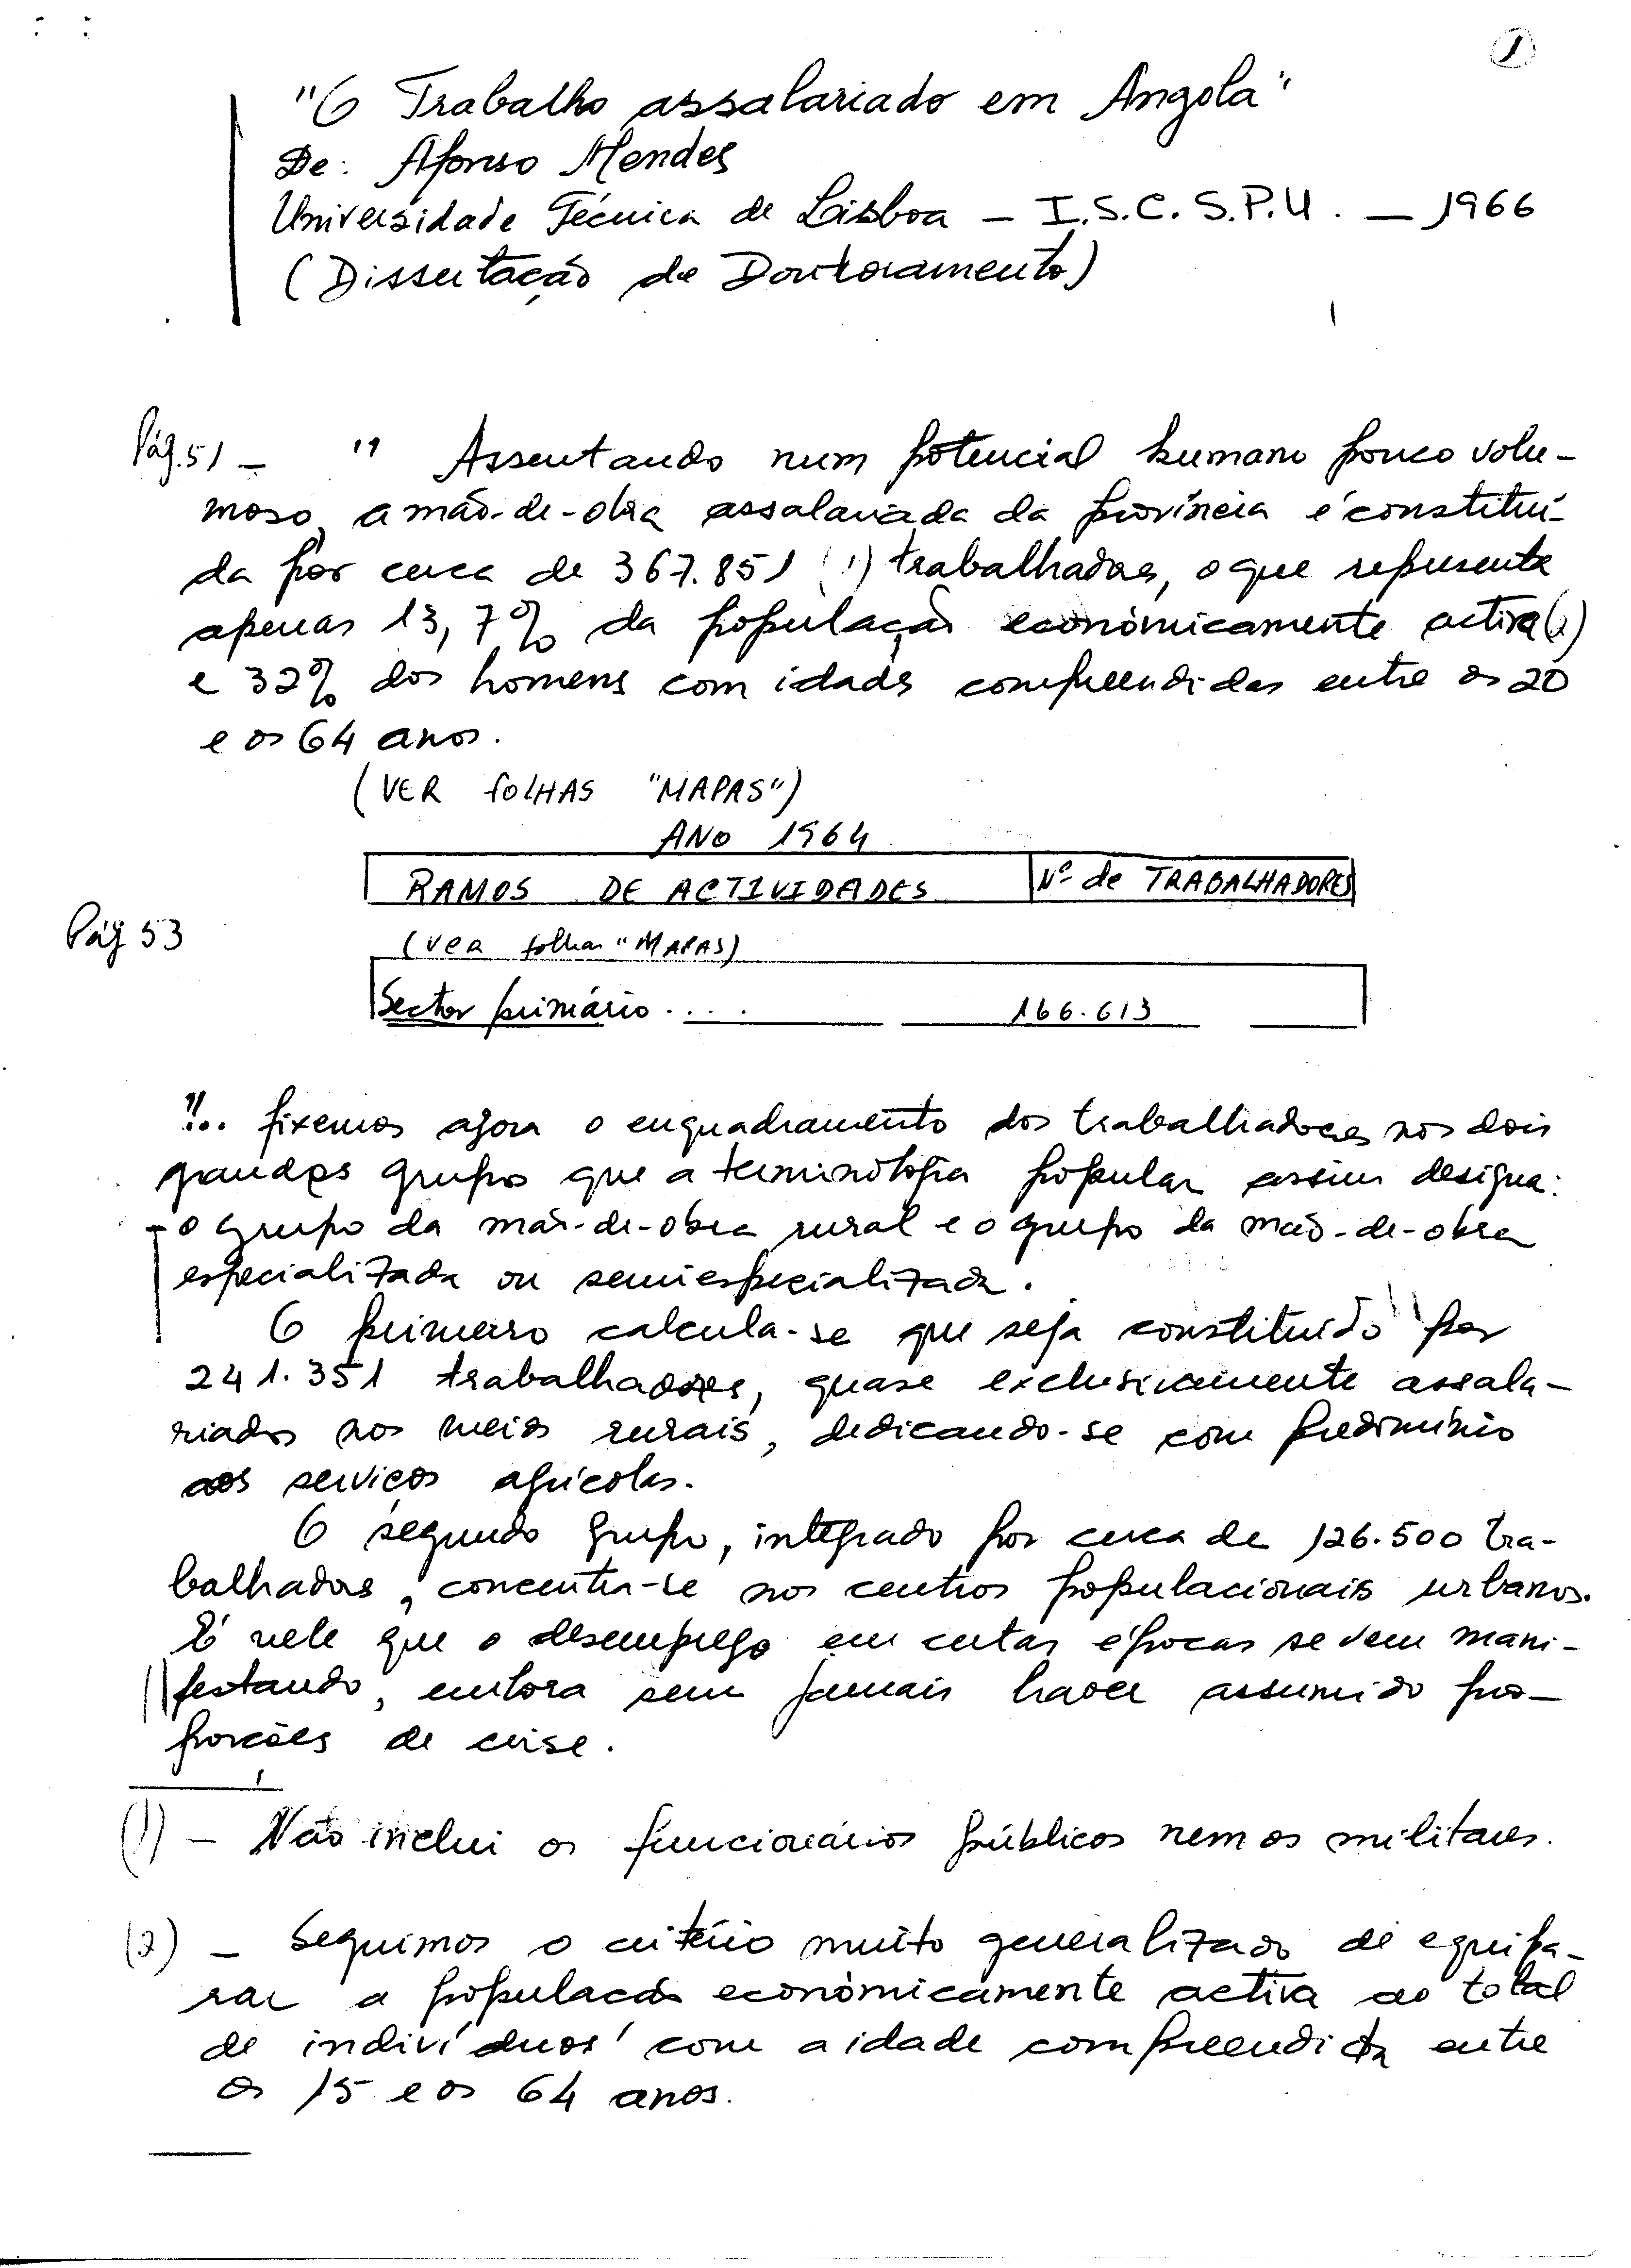 1
"O Trabalho assalariado em Angola"
De: Afonso Mendes
Universidade Técnica de Lisboa – I.S.C.S.P.U. – 1966
(Dissertação de Doutoramento)
Pág. 51 – " Assentando num potencial humano pouco volu-
moso, a mão-de-obra assalariada da província é constituí-
da por cerca de 367.851 (1) trabalhadores, o que representa
apenas 13,7% da população económicamente activa (2)
e 32% dos homens com idades compreendidas entre os 20
e os 64 anos.
(VER FOLHAS "MAPAS")
ANO 1964
RAMOS DE ACTIVIDADES Nº de TRABALHADORES
Pág 53
(ver folhas "MAPAS)
Sector primário . . . . 166.613
"... fixemos agora o enquadramento dos trabalhadores nos dois
grandes grupos que a terminologia popular assim designa:
– o grupo da mão-de-obra rural e o grupo da mão-de-obra
especializada ou semiespecializada.
O primeiro calcula-se que seja constituído por
241.351 trabalhadores, quase exclusivamente assala-
riados nos meios rurais, dedicando-se com predomínio
aos serviços agrícolas.
O segundo grupo, integrado por cerca de 126.500 tra-
balhadores, concentra-se nos centros populacionais urbanos.
É nele que o desemprego em certas épocas se vem mani-
festando, embora sem jamais haver assumido pro-
porções de crise.
(1) – Não inclui os funcionários públicos nem os militares.
(2) – Seguimos o critério muito generalizado de equipa-
rar a população económicamente activa ao total
de indivíduos com a idade compreendida entre
os 15 e os 64 anos.